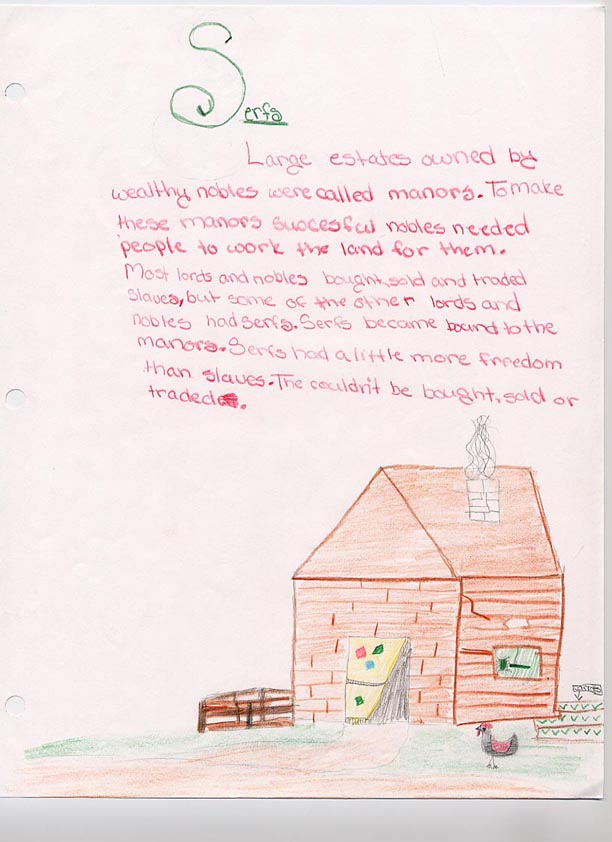 Serfs
Large estates owned by
wealthy nobles were called manors. To make
these manors succesful nobles needed
people to work the land for them.
Most lords and nobles bought, sold and traded
slaves, but some of the other lords and
nobles had serfs. Serfs became bound to the
manors. Serfs had a little more freedom
than slaves. The couldn't be bought, sold or
traded.